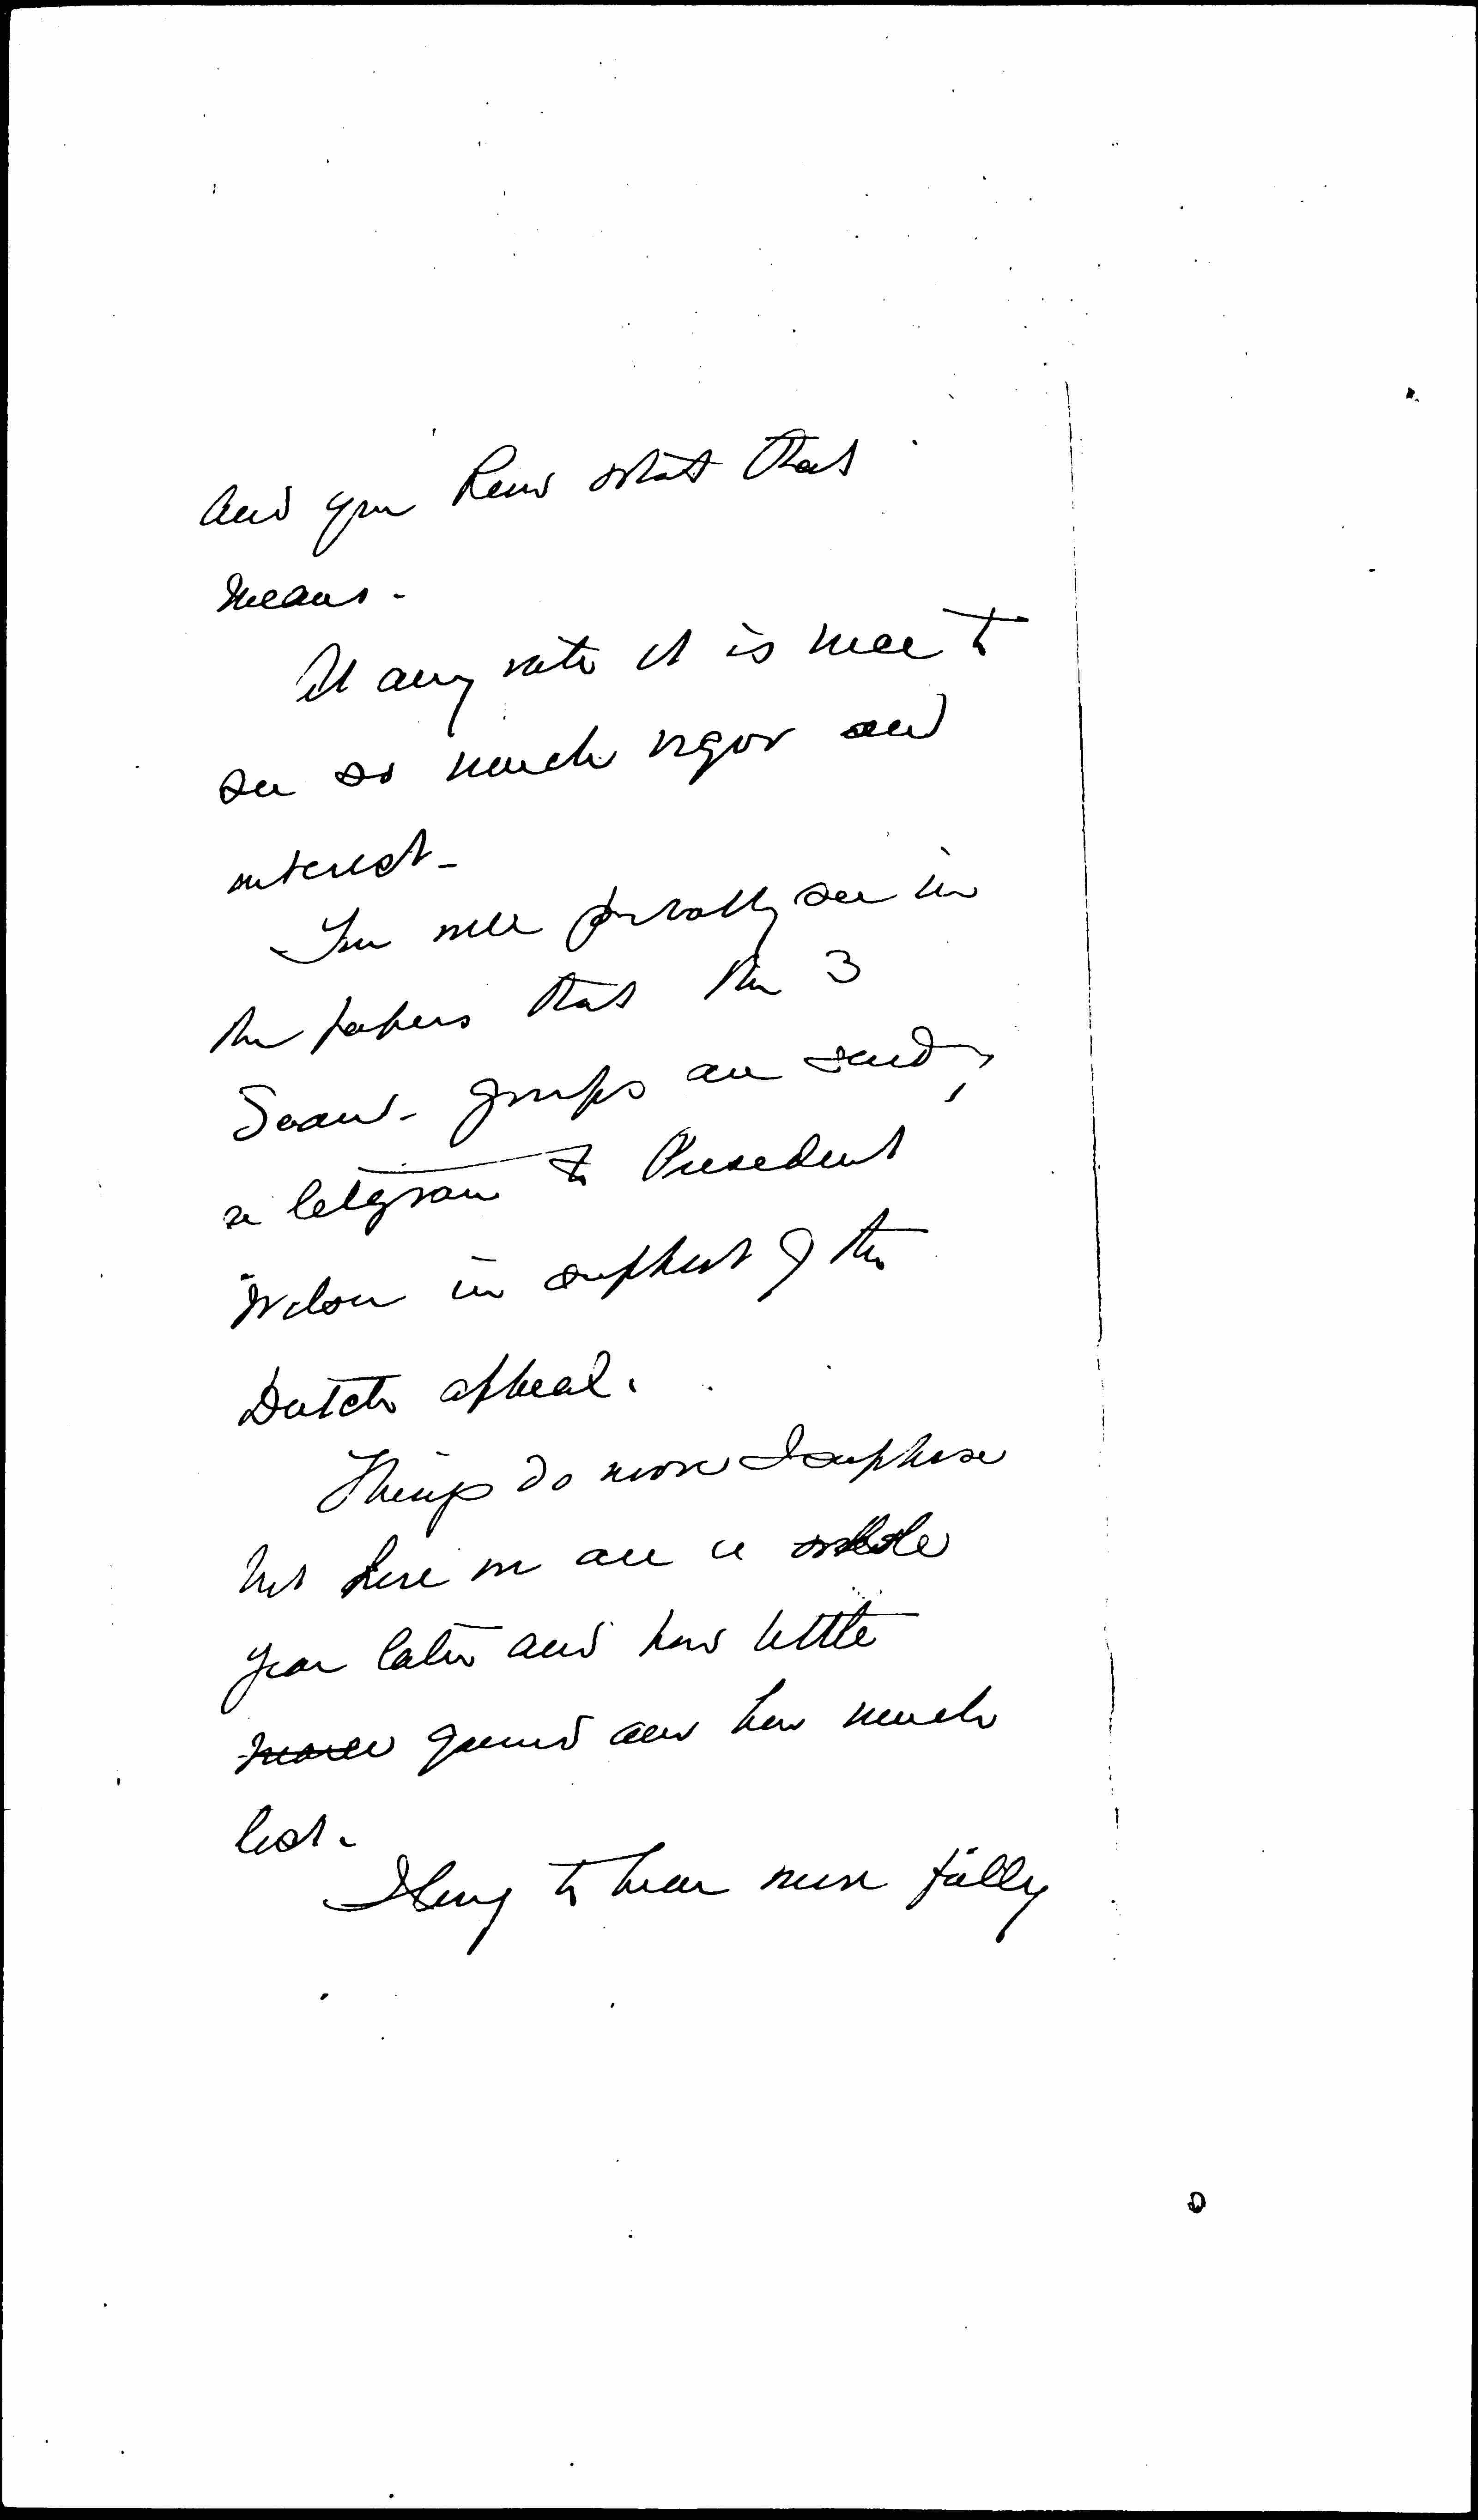 and you know what that
means -
At any rate it is nice to
see so much vigor and
interest -
You will probably see in
the papers that the 3
Scand. groups are sending
a telegram to President
Wilson in support of the
Dutch appeal.
Things do move I suppose
but here we are a whole
year later and how little
gained and how much
lost.
I long to hear more fully